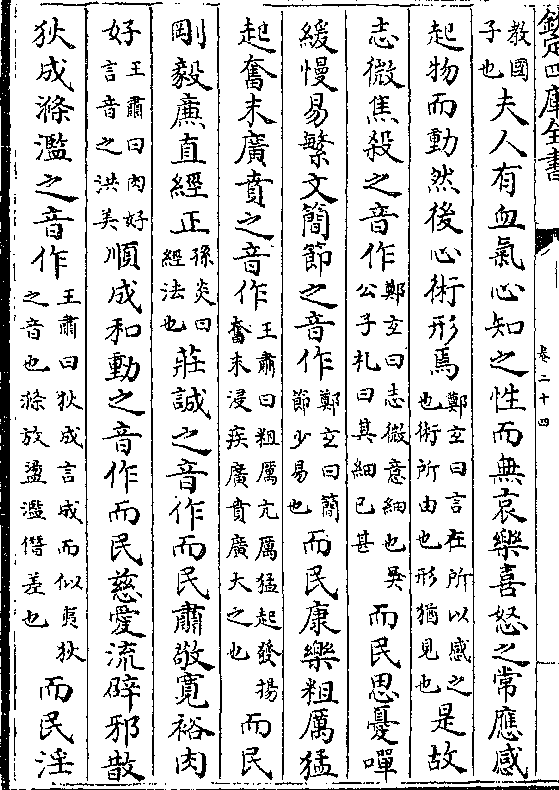 欽定四庫全書
卷二十四
教國子也夫人有血氣心知之性而無哀樂喜怒之常應感
起物而動然後心術形焉鄭玄曰言在所以感之也術所由也形猶見也是故
志微焦殺之音作鄭玄曰志微意細也吳公子札曰其細已甚而民思憂嘽
緩慢易繁文簡節之音作鄭玄曰簡節少易也而民康樂粗厲猛
起奮末廣賁之音作王肅曰粗厲亢厲猛起發揚奮末浸疾廣賁廣大之也而民
剛毅廉直經正孫炎曰經法也莊誠之音作而民肅敬寬裕肉
好王肅曰肉好言音之洪美順成和動之音作而民慈愛流辟邪散
狄成滌濫之音作王肅曰狄成言成而似夷狄之音也滌放盪濫僭差也而民淫